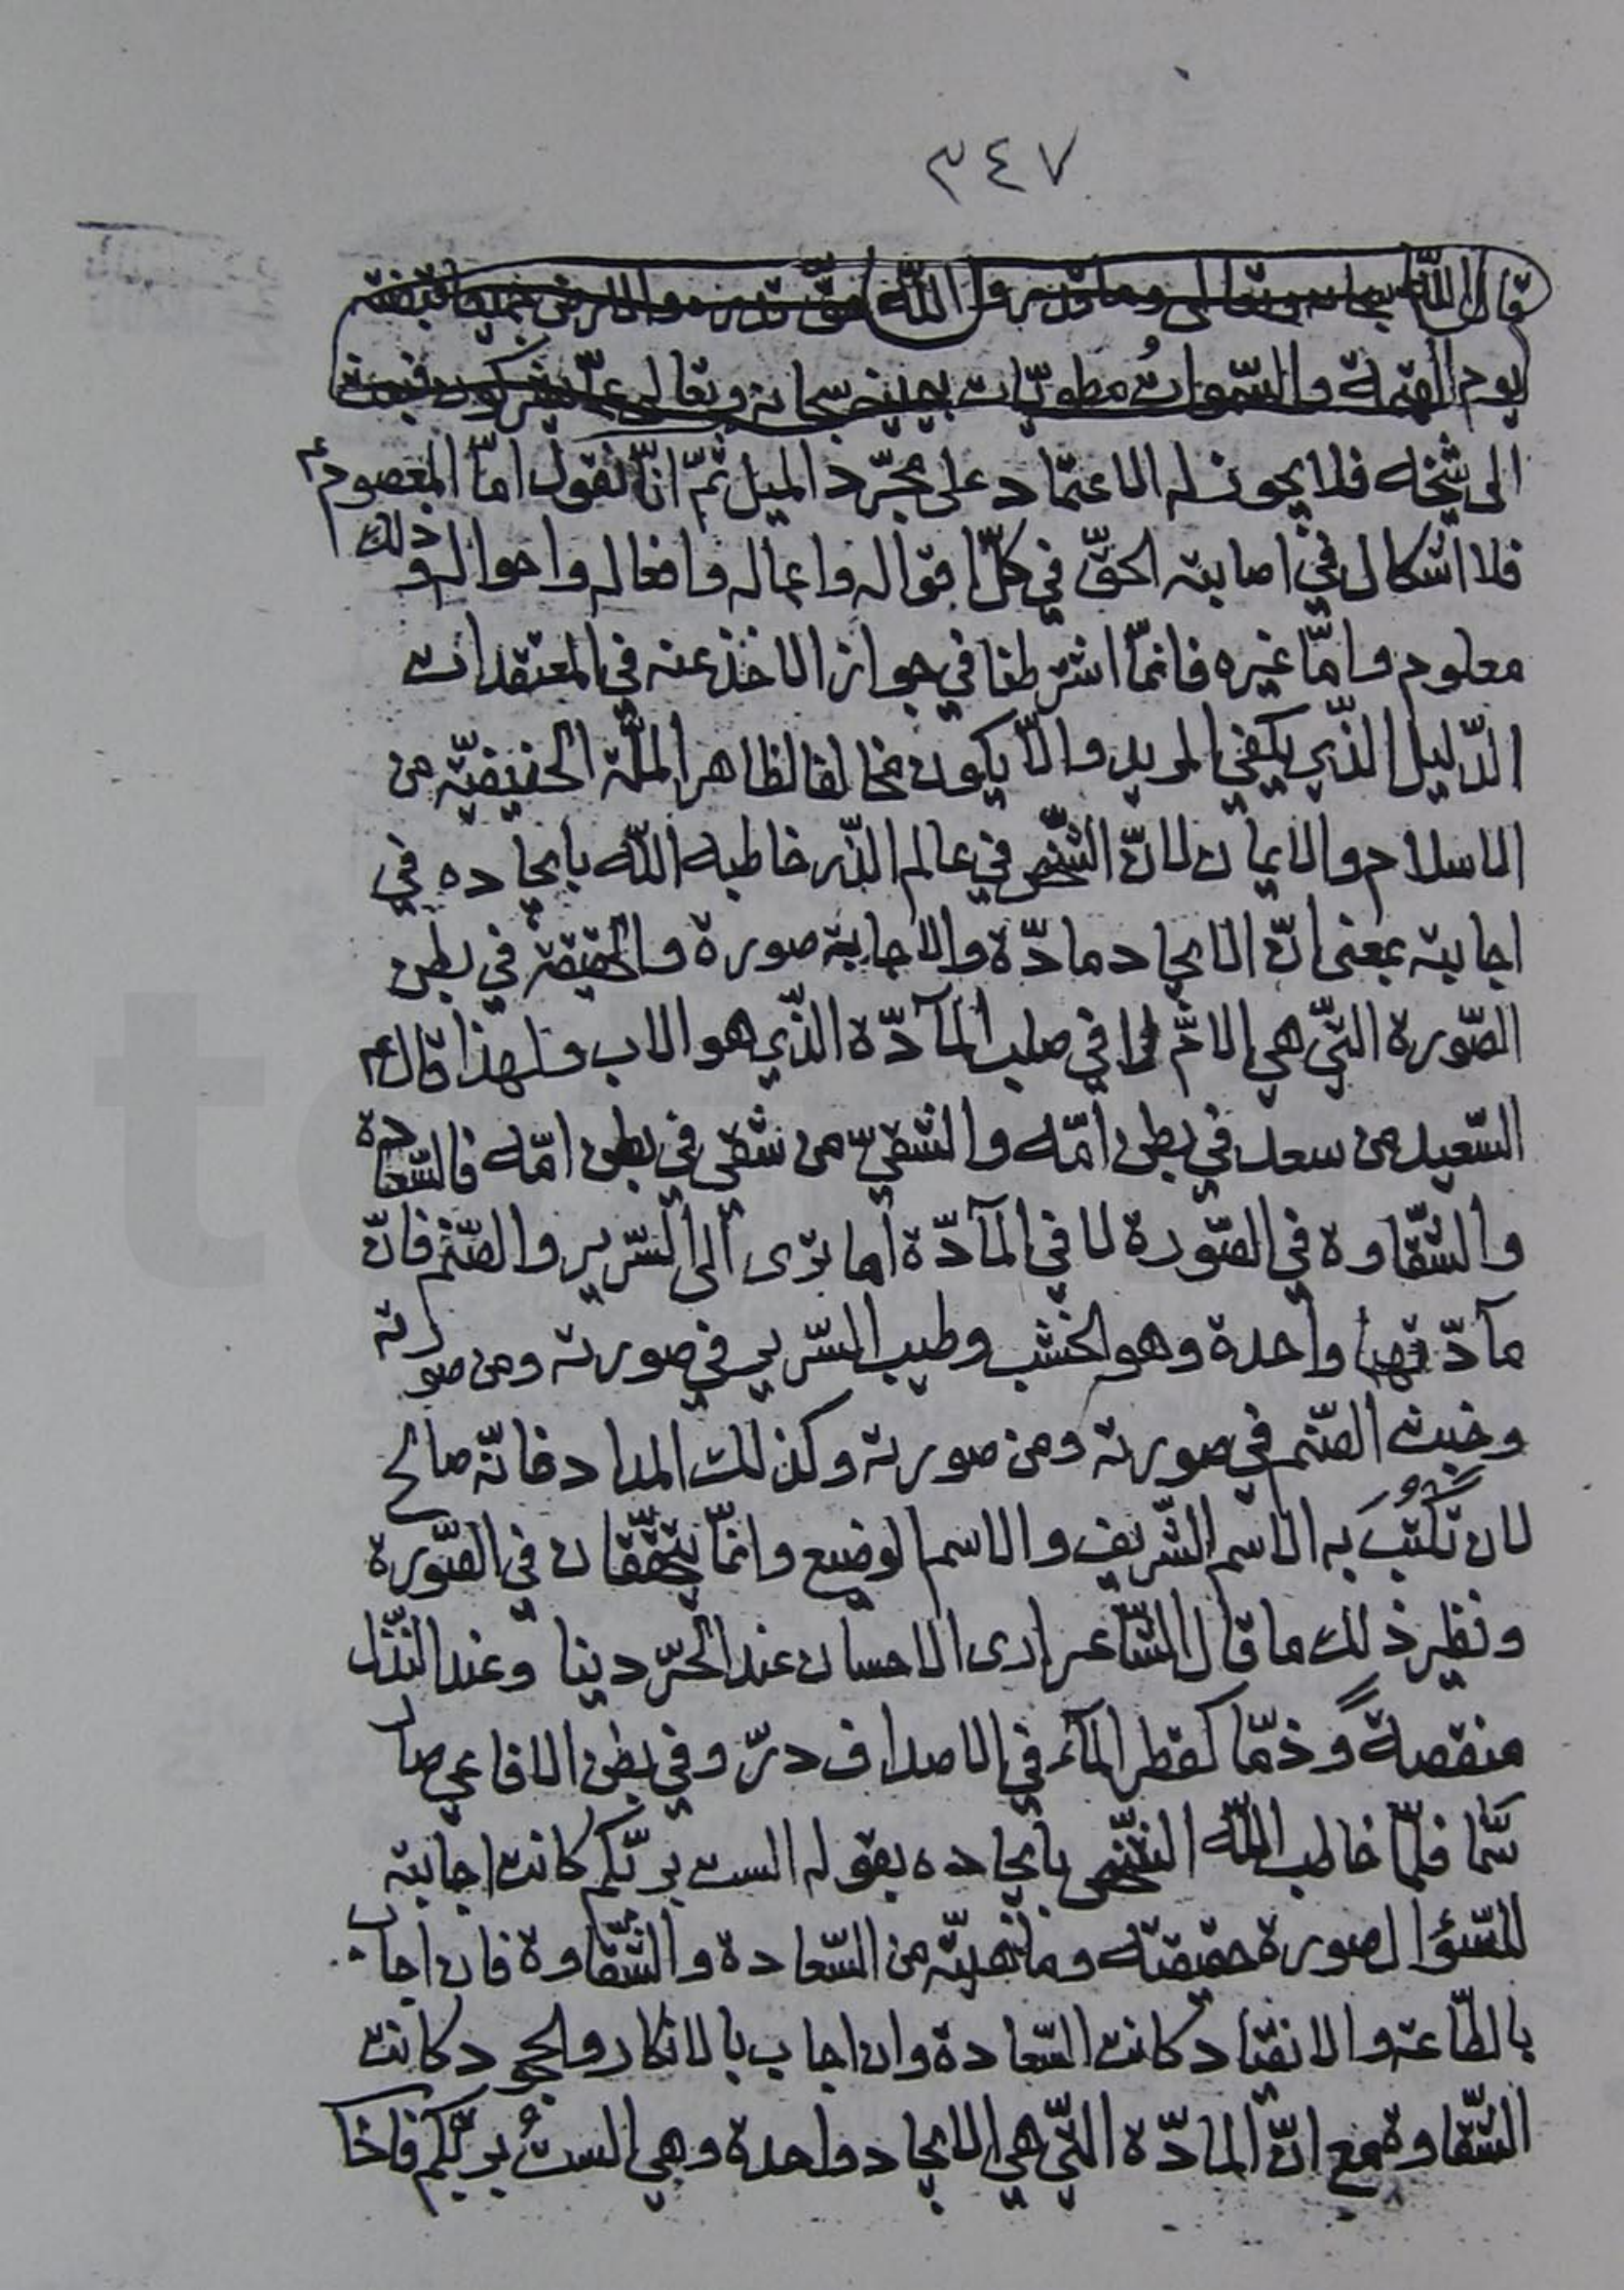 ٣٤٧
قال اللّه سبحانه وتعالى وما قدروا اللّه حقّ قدره والارض جميعا قبضته
يوم القيمة والسّموات مطويّات بيمينه سبحانه وتعالى عمّا يشركون
الى شيخه فلا يجوز له الاعتماد على مجرّد الميل ثمّ انّا نقول امّا المعصوم ع
فلا اشكال في اصابته الحقّ في كلّ اقواله واعماله وافعاله واحواله وذلك
معلوم وامّا غيره فانمّا اشترطنا في جواز الاخذ عنه في المعتقدات
الدّليل الذّي يكفي المريد والّا يكون مخالفا لظاهر الملّة الحنيفيّة من
الاسلام والايمان لانّ الشّخص في عالم الذّر خاطبه اللّه بايجاده في
اجابته بمعنى انّ الايجاد مادّة والاجابة صورة والحقيقة في بطن
الصّورة التّي هي الامّ لا في صلب المآدّة الذّي هو الاب ولهذا قال ع
السّعيد من سعد في بطن امّه والشقيّ من شقي في بطن امّه فالسّعادة
والشّقاوة في الصّورة لا في المآدّة أما ترى الى السّرير والصّنم فانّ
مآدّتهما واحدة وهو الخشب وطيب السّرير في صورته ومن صورته
وخبث الصّنم في صورته ومن صورته وكذلك المداد فانّه صالح
لان تُكتَبَ به الاسم الشّريف والاسم الوضيع وانمّا يتحقّقان في الصّورة
ونظير ذلك ما قال الشّاعر ارى الاحسان عند الحرّ دينا وعند النّذل
منقصةً وذمّا كقطر المآء في الاصداف درّ وفي بطن الافاعي صار
سّما فلمّا خاطب اللّه الشّخص بايجاده بقوله الست بربّكم كانت اجابته
للسّؤال صورة حقيقته ومآهيّته من السّعادة والشّقاوة فان اجاب
بالطّاعة والانقياد كانت السّعادة وان اجاب بالانكار والجحود كانت
الشّقاوة مع انّ المادّة التّي هي الايجاد واحدة وهي الستُ بربّكم فاخا